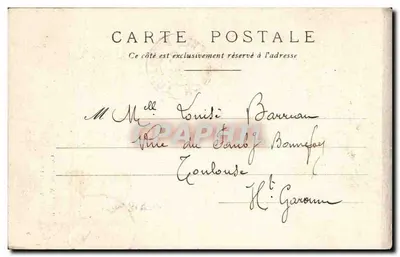 CARTE POSTALE
Ce côté est exclusivement réservé à l'adresse
M Mlle Louise Barreau
Rue du Faubg Bonnefoy
Toulouse
Hte Garonne